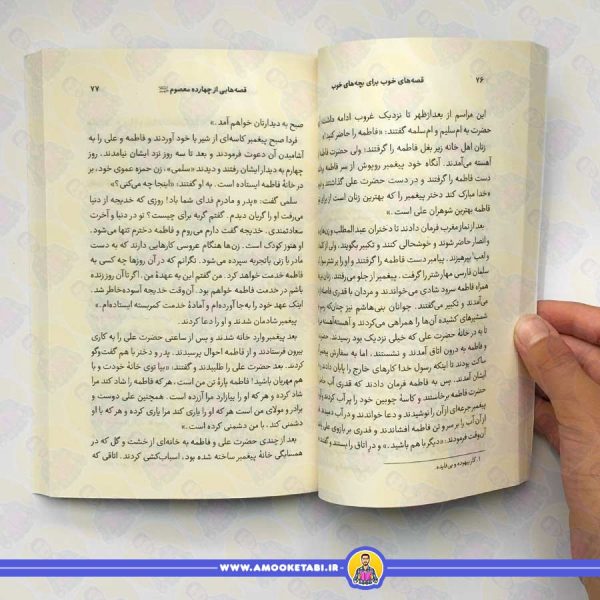 ۷۶ قصه‌های خوب برای بچه‌های خوب
این مراسم از بعدازظهر تا نزدیک غروب ادامه داشت
حضرت به ام‌سلیم و ام‌سلمه گفتند: «فاطمه را حاضر کنید
زنان اهل خانه زیر بغل فاطمه را گرفتند؛ ولی حضرت
آهسته می‌آمدند. آنگاه خود پیغمبر روپوش از سر فاطمه
دست فاطمه را گرفتند و در دست حضرت علی گذاشتند و
«خدا مبارک کند دختر پیغمبر را که بهترین زنان است از برای
فاطمه بهترین شوهران علی است.»
بعد از نماز مغرب فرمان دادند تا دختران عبدالمطلب و زن‌های
و انصار حاضر شوند و خوشحالی کنند و تکبیر بگویند، ولی از گفتن
و لعب بپرهیزند. پیامبر دست فاطمه را گرفتند و او را بر شتر سوار
سلمان فارسی مهار شتر را گرفت. پیغمبر از جلو می‌رفتند. زنان
همراه فاطمه سرود شادی می‌خواندند و مردان با قدری فاصله
می‌آمدند و تکبیر می‌گفتند. جوانان بنی‌هاشم نیز چنان‌که رسم
شمشیرهای کشیده آن‌ها را همراهی می‌کردند و آهسته‌آهسته
تا به در خانهٔ حضرت علی که خیلی نزدیک بود رسیدند.
و فاطمه به درون اتاق آمدند و نشستند. اما به سفارش پیغمبر
ساکت بودند تا اینکه رسول خدا کارهای خارج را پایان دادند
آمدند. پس به فاطمه فرمان دادند که قدری آب
حضرت فاطمه برخاستند و کاسهٔ چوبین خود را پر آب کردند
پیغمبر جرعه‌ای از آن را نوشیدند و دعا خواندند و در آب
از آن آب را بر سر و تن فاطمه افشاندند و قدری بر بازوی علی
آن‌وقت فرمودند: «دیگر با هم باشید.» و در اتاق را بستند و گفتند
۱. کار بیهوده و بی‌فایده.
قصه‌هایی از چهارده معصوم ۷۷
صبح به دیدارتان خواهم آمد.»
فردا صبح پیغمبر کاسه‌ای از شیر با خود آوردند و فاطمه و علی را به
آشامیدن آن دعوت فرمودند و بعد تا سه روز نزد ایشان نیامدند. روز
چهارم به دیدار ایشان رفتند و دیدند «سلمی»، زن حمزه عموی خود، بر
در خانهٔ فاطمه ایستاده است. به او گفتند: «اینجا چه می‌کنی؟»
سلمی گفت: «پدر و مادرم فدای شما باد! روزی که خدیجه از دنیا
می‌رفت او را گریان دیدم. گفتم گریه برای چیست؟ تو در دنیا و آخرت
سعادتمندی. خدیجه گفت دارم می‌روم و فاطمه دخترم تنها می‌شود.
او هنوز کودک است. زن‌ها هنگام عروسی کارهایی دارند که به دست
مادر یا زنی باتجربه سپرده می‌شود. نگرانم که در آن روزها چه کسی به
فاطمه خدمت خواهد کرد. من گفتم این به عهدهٔ من. اگر تا آن روز زنده
باشم در خدمت فاطمه خواهم بود. آن‌وقت خدیجه آسوده‌خاطر شد.
اینک عهد خود را به‌جا آورده‌ام و آمادهٔ خدمت کمربسته ایستاده‌ام.»
پیغمبر شادمان شدند و او را دعا کردند.
بعد پیغمبر وارد خانه شدند و پس از ساعتی حضرت علی را به کاری
بیرون فرستادند و از فاطمه احوال پرسیدند. پدر و دختر با هم گفت‌وگو
کردند. بعد حضرت علی را طلبیدند و گفتند: «بیا توی خانهٔ خودت و با
هم مهربان باشید! فاطمه پارهٔ تن من است. هر که فاطمه را شاد کند مرا
شاد کرده و هر که او را بیازارد مرا آزرده است. همچنین علی دوست و
برادر و مولای من است هر که او را یاری کند مرا یاری کرده و هر که با او
دشمنی کند، با من دشمنی کرده است.»
بعد از چندی حضرت علی و فاطمه به خانه‌ای از خشت و گل که در
همسایگی خانهٔ پیغمبر ساخته شده بود، اسباب‌کشی کردند. اتاقی که
WWW.AMOOKETABI.IR